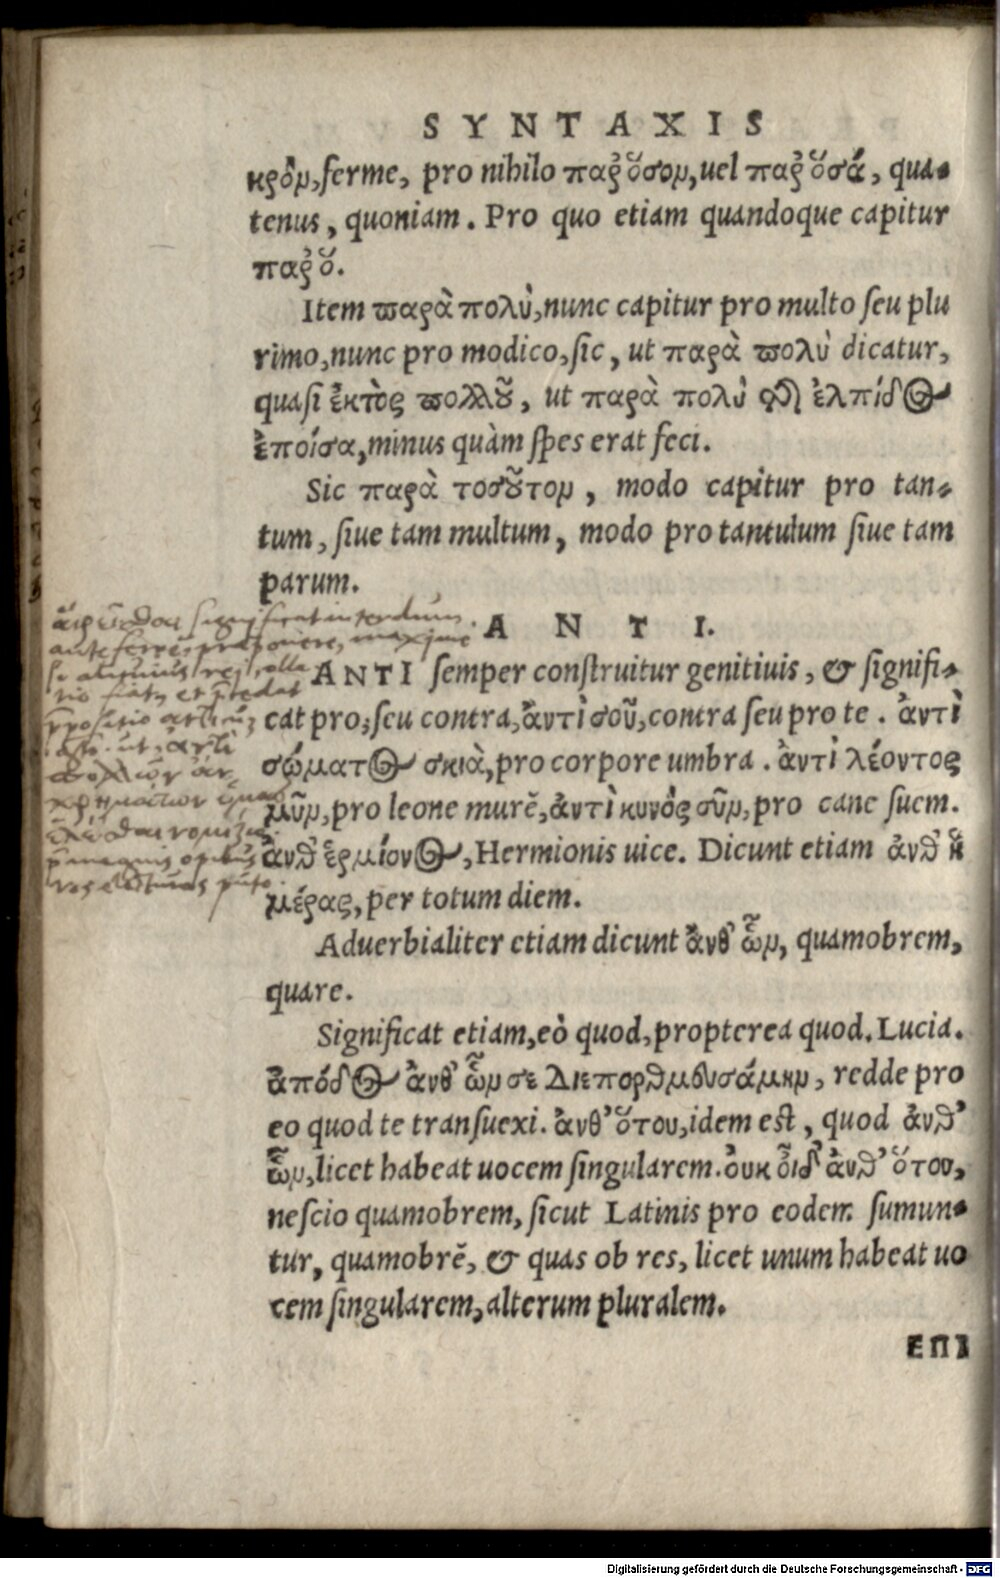 SYNTAXIS
κρὸν, ferme, pro nihilo παρ᾽ ὅσον, uel παρ᾽ ὅσά, qua-
tenus, quoniam. Pro quo etiam quandoque capitur
παρ᾽ ὅ.
Item παρὰ πολὺ, nunc capitur pro multo seu plu
rimo, nunc pro modico, sic, ut παρὰ πολὺ dicatur,
quasi ἐκτὸς πολλοῦ, ut παρὰ πολὺ τῆς ἐλπίδος
ἐποίσα, minus quàm spes erat feci.
Sic παρὰ τοσοῦτον, modo capitur pro tan-
tum, siue tam multum, modo pro tantulum siue tam
parum.
ANTI.
ἁιρεῖσθαι significat interdum
anteferre, praeponere, maxime
si alicuius rei
ANTI semper construitur genitiuis, & signifi-
cat pro, seu contra, ἀντὶ σοῦ, contra seu pro te. ἀντὶ
σώματος σκιὰ, pro corpore umbra. ἀντὶ λέοντος
μῦν, pro leone murẽ, ἀντὶ κυνός σῦν, pro cane suem.
ἀνθ᾽ ἑρμίονος, Hermionis uice. Dicunt etiam ἀνθ᾽ ἡ
μέρας, per totum diem.
Aduerbialiter etiam dicunt ἀνθ᾽ ὧν, quamobrem,
quare.
Significat etiam, eò quod, propterea quod. Lucia.
ἀπόδος ἀνθ᾽ ὧν σε διεπορθμευσάμην, redde pro
eo quod te transuexi. ἀνθ᾽ ὅτου, idem est, quod ἀνθ᾽
ὧν, licet habeat uocem singularem. ὀυκ οἶδ᾽ ἀνθ᾽ ὅτου,
nescio quamobrem, sicut Latinis pro eodem sumun-
tur, quamobrẽ, & quas ob res, licet unum habeat uo
cem singularem, alterum pluralem.
ΕΠΙ
Digitalisierung gefördert durch die Deutsche Forschungsgemeinschaft - DFG